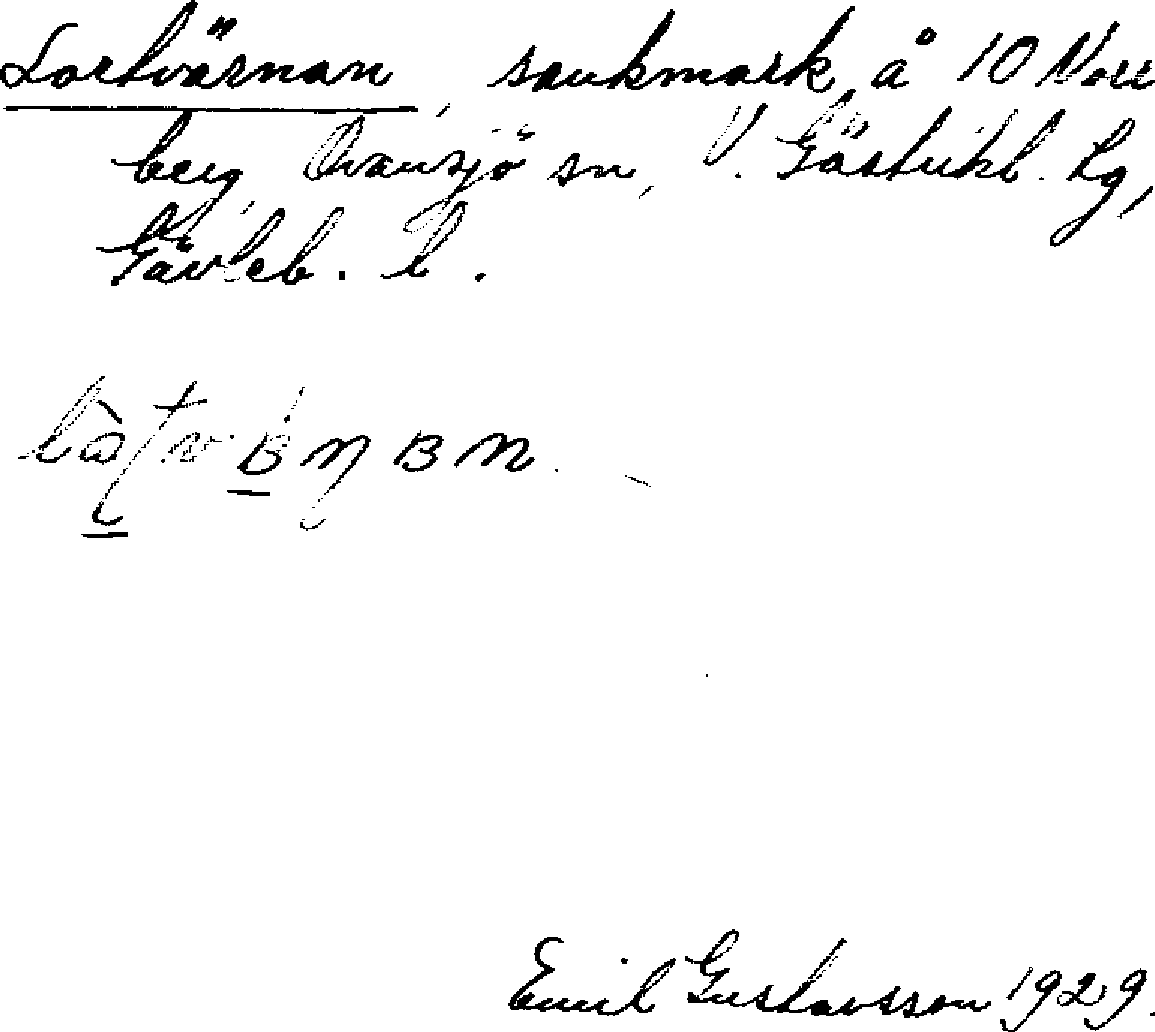 Lortvärnan, sankmark å 10 Norr
berg, Ovansjö sn, V. Gästrikl. hg,
Gävleb. l.
Emil Gustavsson 1929.